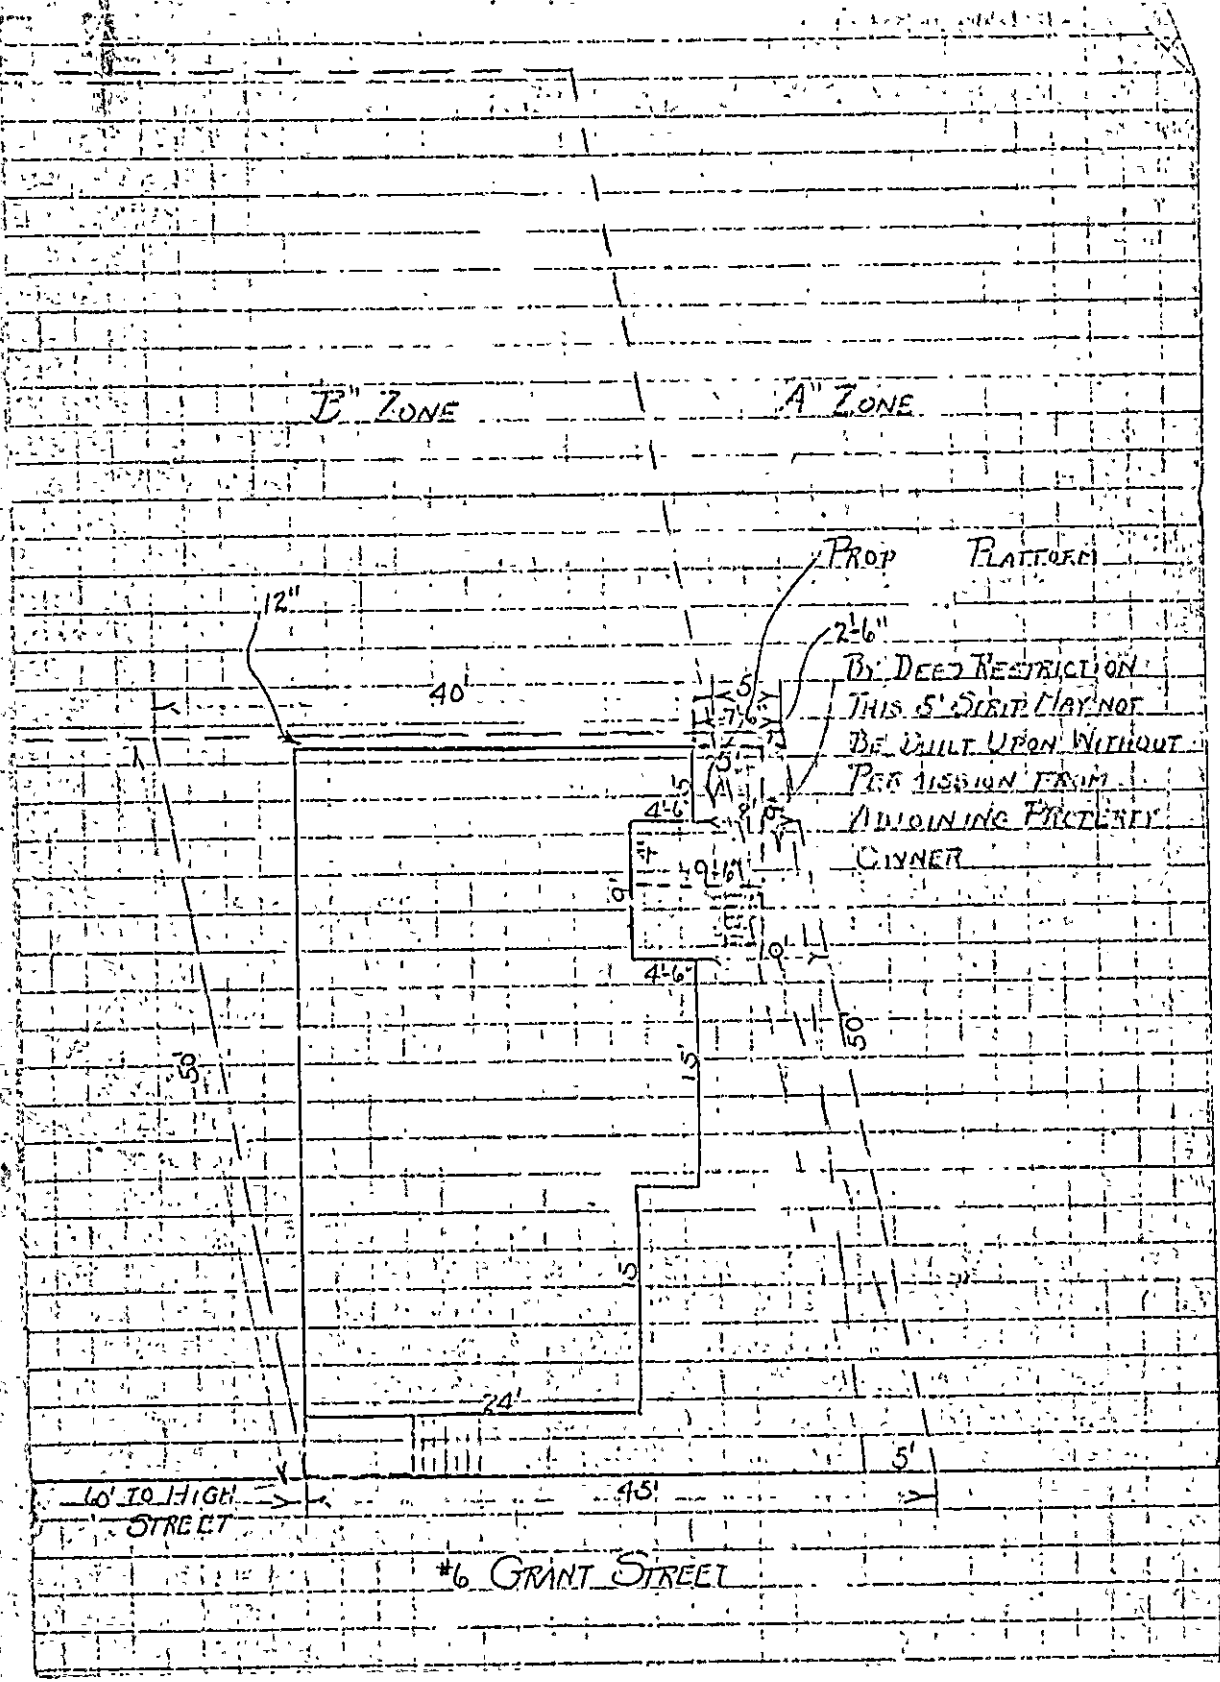 "B" ZONE
"A" ZONE
PROP PLATFORM
12"
2'-6"
BY DEED RESTRICTION
THIS 5' STRIP MAY NOT
BE BUILT UPON WITHOUT
PERMISSION FROM
ADJOINING PROPERTY
OWNER
40'
5'
7'-6"
5'
5'
4'-6"
8'
9'
9'
9'-6"
4'-6"
50'
15'
50'
15
24'
5'
60' TO HIGH
STREET
45'
#6 GRANT STREET